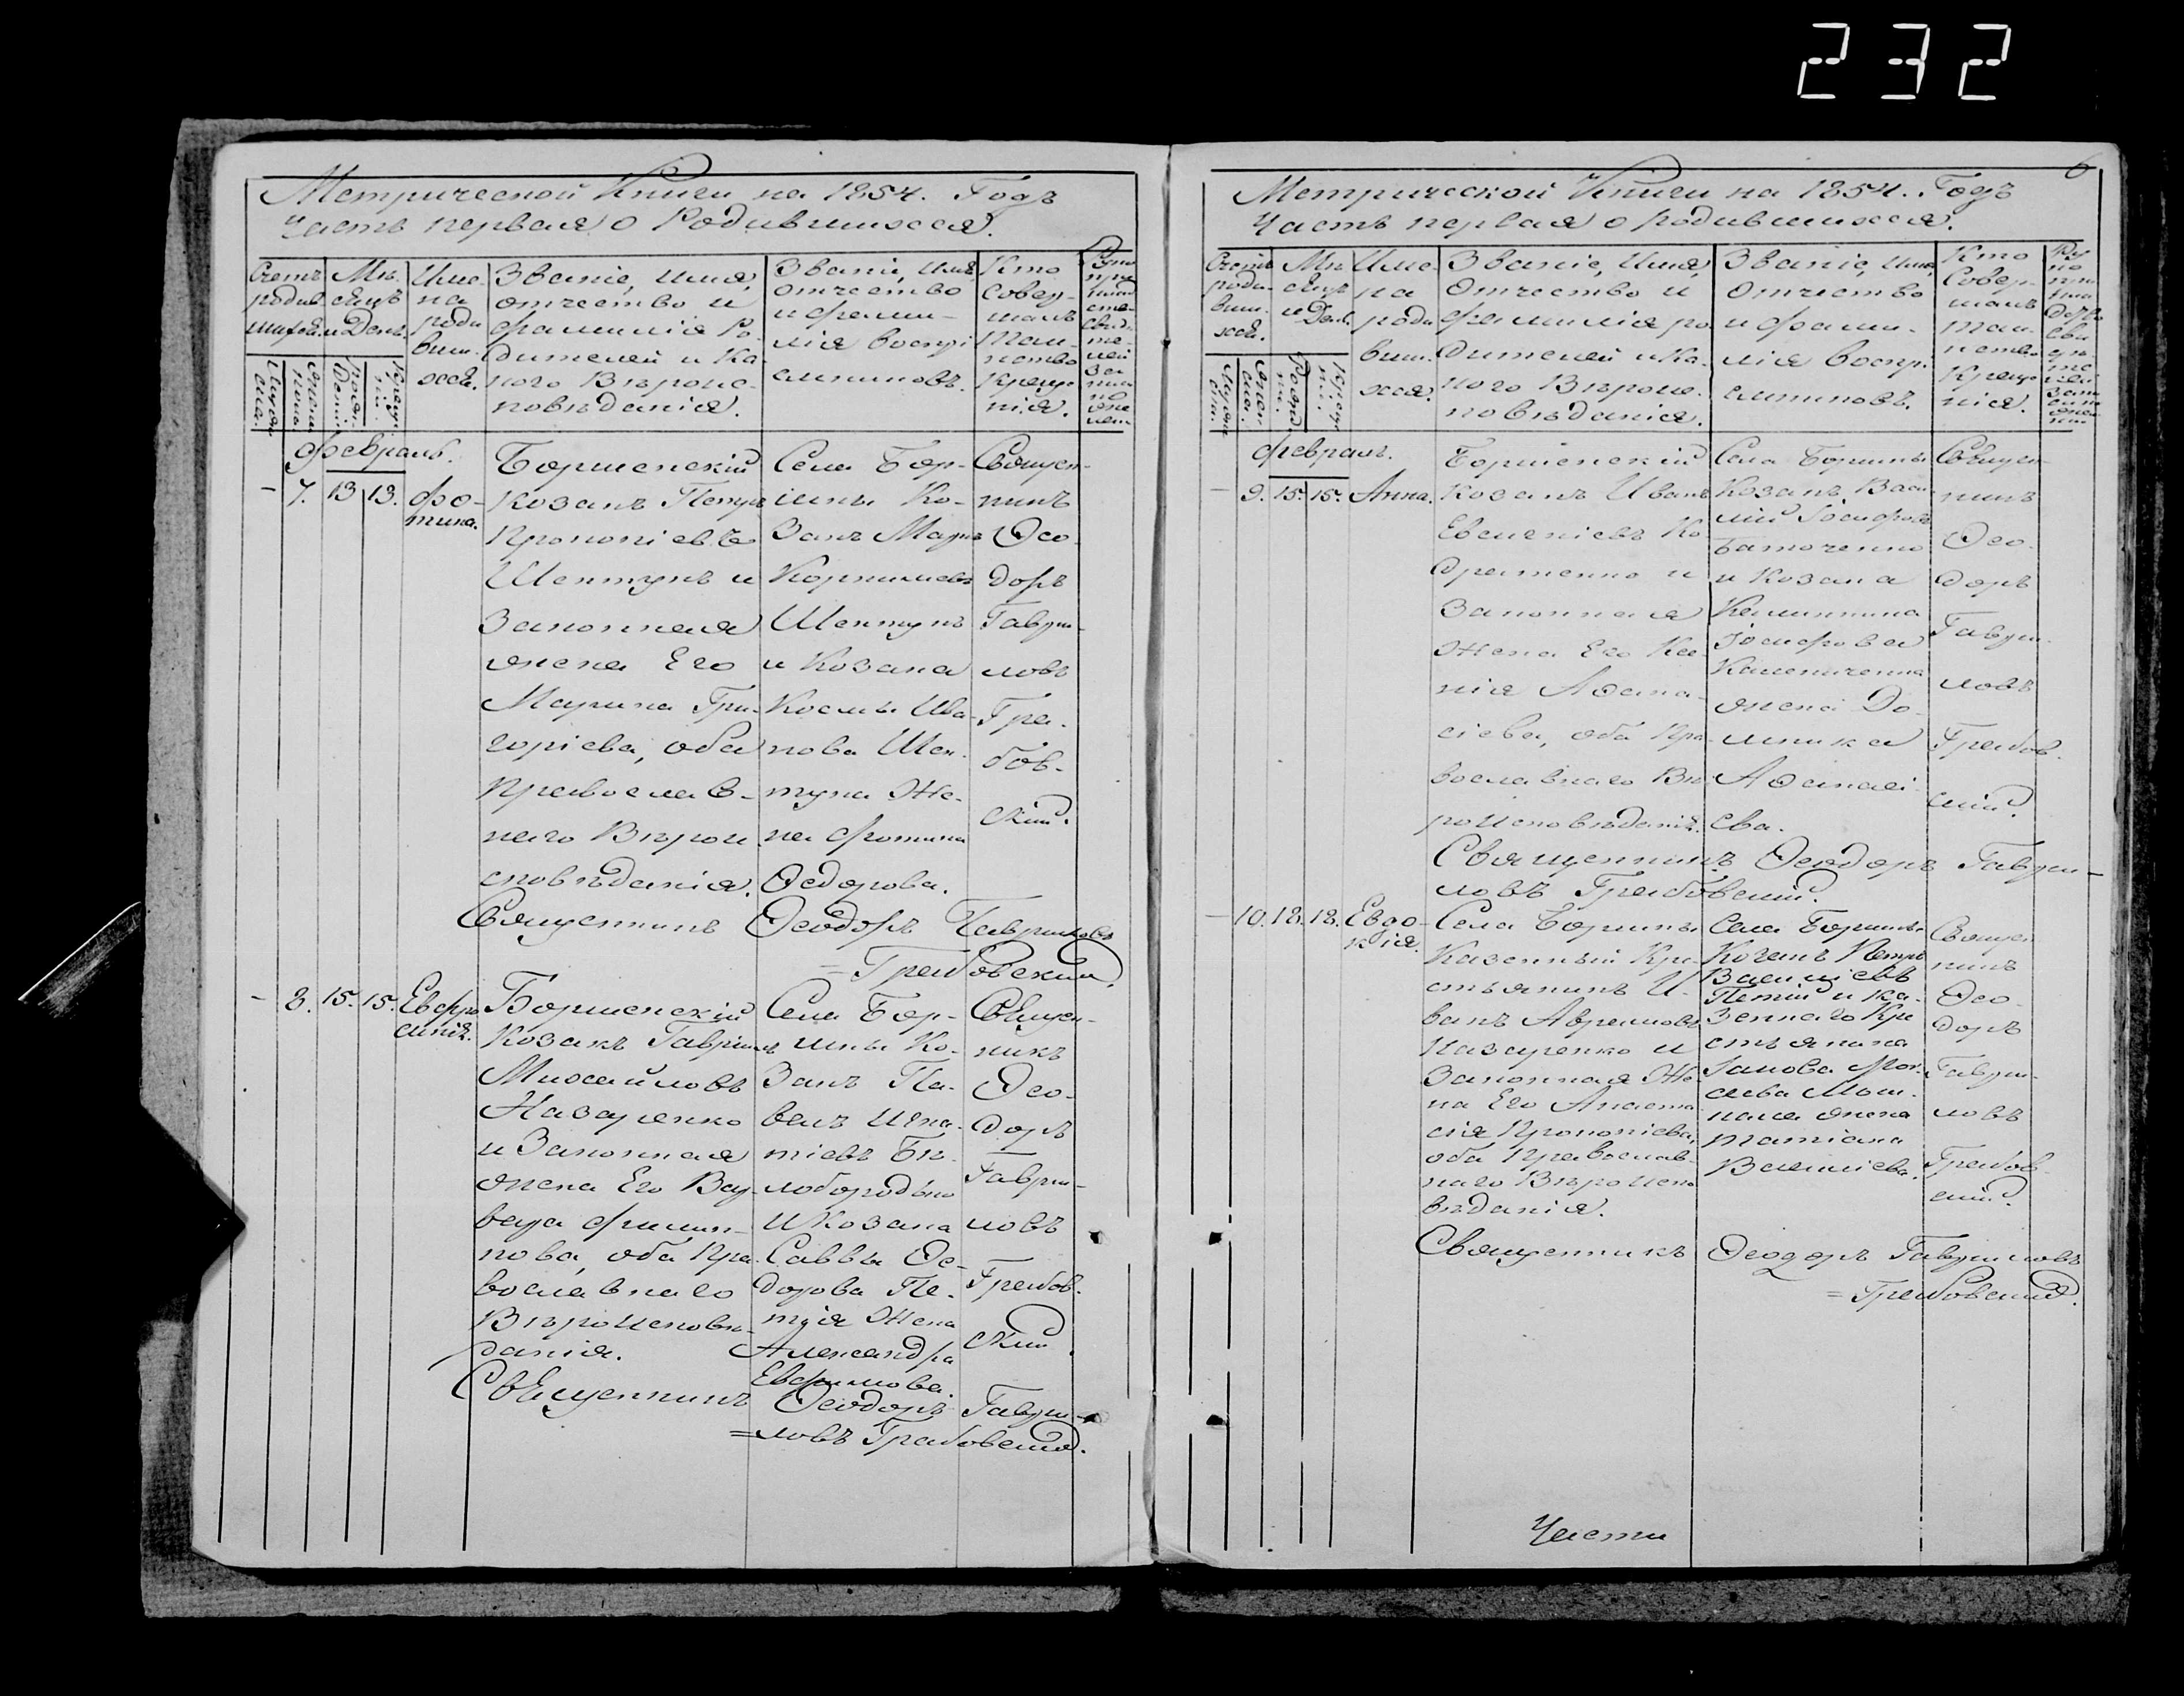 232
Метрической Книги на 1854. Годъ
Часть первая о Родившихся.
Счетъ родившихся.
Мѣсяцъ и День.
Имена родившихся.
Званіе, имя, отчество и фамилія Родителей и Какого Вѣроисповѣданія.
Званіе, имя, отчество и фамилія Воспріемниковъ.
Кто совершалъ Таинство Крещенія.
Февраль.
7. 13 13. Фотина.
Боршенскій
Козакъ Петръ
Прокопіевъ
Шептунъ и
Законная
жена Его
Марина Гри-
горіева, оба
Православ-
наго Вѣрои
сповѣданія.
Села Бор-
шны Ко-
закъ Марко
Корнилиевъ
Шептунъ
и Козака
Космы Ива-
нова Шеп-
туна Же-
на Фотина
Ѳедорова.
Священ-
никъ
Ѳео-
доръ
Гаври-
ловъ
Гра-
бов-
скій.
Священникъ Ѳеодоръ Гавриловъ
=Грабовскій.
8. 15. 15. Евфро
синія.
Боршенскій
Козакъ Гавріилъ
Михайловъ
Назаренко
и Законная
жена Его Вар-
вара Филип-
пова, оба Пра-
вославнаго
Вѣроисповѣ-
данія.
Села Бор-
шны Ко-
закъ Па-
велъ Игна-
тіевъ Бѣ-
лобородько
и Козака
Саввы Ѳе-
дорова Пе-
тія Жена
Александра
Евфимова.
Священ-
никъ
Ѳео-
доръ
Гаври-
ловъ
Грабов-
скій.
Священникъ Ѳеодоръ Гаври-
=ловъ Грабовскій.
6
Метрической Книги на 1854. Годъ
Часть первая о родившихся.
Счетъ родившихся.
Мѣсяцъ и День.
Имена родившихся.
Званіе, Имя, Отчество и фамилія родителей и Какого Вѣроисповѣданія.
Званіе, имя, Отчество и фамилія Воспріемниковъ.
Кто Совершалъ Таинство Крещенія.
Февраль.
9. 15. 15. Анна.
Боршенскій
Козакъ Иванъ
Евсигніевъ Ко
дратенко и
Законная
Жена Его Ксе-
нія Аѳана-
сіева, оба Пра-
вославнаго Вѣ-
роисповѣданія.
Села Боршны
Козакъ Васи-
лій Іосифовъ
Баточенко
и Козака
Калинника
Іосифова
жена До-
мника
Аѳанасі-
ева.
Священ-
никъ
Ѳео-
доръ
Гаври-
ловъ
Грабов-
скій.
Священникъ Ѳеодоръ Гаври-
ловъ Грабовскій.
10. 18. 18. Евдо-
кія.
Села Боршны
Казенный Кре-
стьянинъ И-
ванъ Аврамовъ
Назаренко и
Законная Же-
на Его Анаста-
сія Прокопіева,
оба Православ-
наго Вѣроиспо
вѣданія.
Села Боршны
Козакъ Петръ
Василіевъ
Петій и Ка-
зеннаго Кре
стьянина
жена
Татіана
Василіева.
Священ
никъ
Ѳео-
доръ
Гаври-
ловъ
Грабов-
скій.
Священникъ Ѳеодоръ Гавриловъ
=Грабовскій.
Части